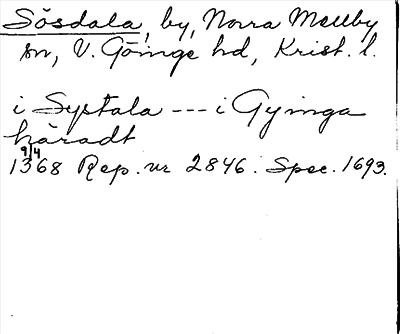 Sösdala, by, Norra Mellby
sn, V. Göinge hd, Krist. l.
i Systala --- i Gyinga
häradt
9/4
1368 Rep. nr 2846. Spec. 1693.